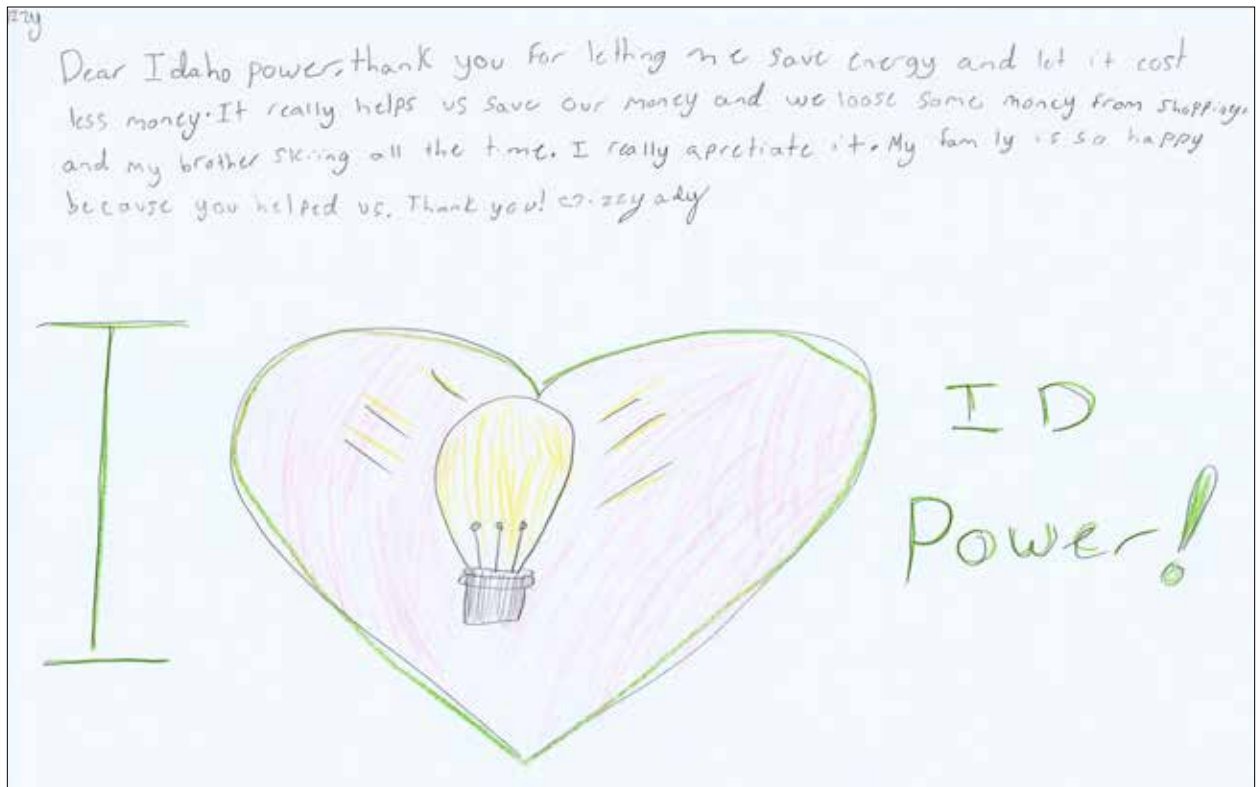 zzy
Dear Idaho power, thank you for letting me save energy and let it cost
less money. It really helps us save our money and we loose some money from shopping.
and my brother skiing all the time. I really apretiate it. My family is so happy
because you helped us. Thank you!
I
ID
Power!